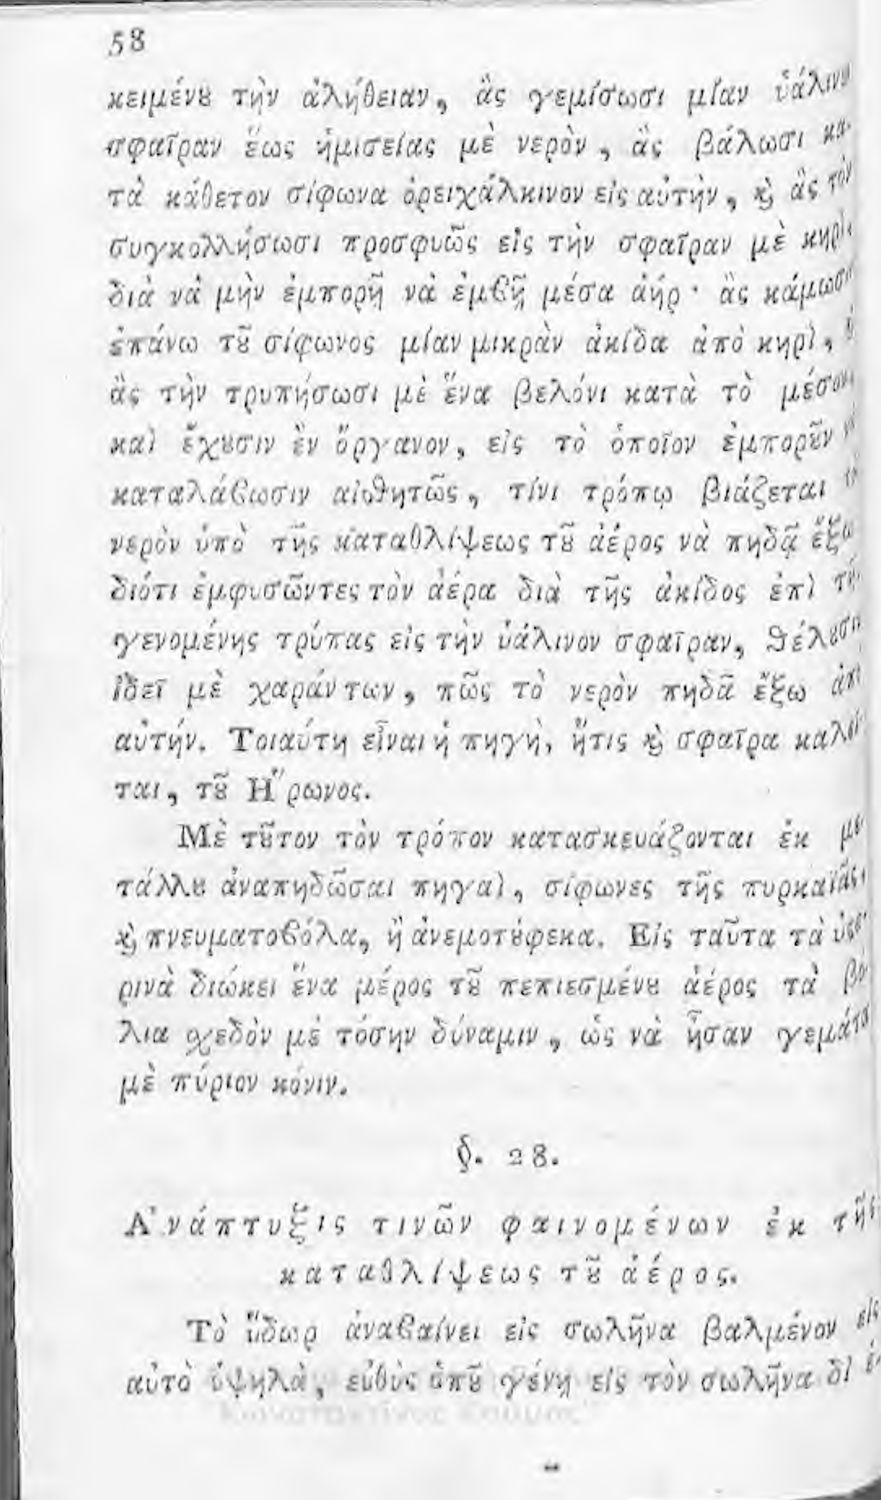 58
κειμένȣ τὴν ἀλήθειαν, ἂς γεμίσωσι μίαν ὑάλινη
σφαῖραν ἕως ἡμισείας μὲ νερὸν, ἂς βάλωσι κα-
τὰ κάθετον σίφωνα ὀρειχάλκινον εἰς αὐτὴν, ϗ ἂς τὸν
συγκολλήσωσι προσφυῶς εἰς τὴν σφαῖραν μὲ κηρὶ,
διὰ νὰ μὴν ἐμπορῇ νὰ ἐμϐῇ μέσα ἀήρ · ἂς κάμωσι
ἐπάνω τȣ͂ σίφωνος μίαν μικρὰν ἀκίδα ἀπὸ κηρὶ,
ἂς τὴν τρυπήσωσι μὲ ἕνα βελόνι κατὰ τὸ μέσον,
καὶ ἔχȣσιν ἓν ὄργανον, εἰς τὸ ὁποῖον ἐμπορȣ͂ν
καταλάϐωσιν αἰσθητῶς, τίνι τρόπῳ βιάζεται
νερὸν ὑπὸ τῆς καταθλίψεως τȣ͂ ἀέρος νὰ πηδᾷ ἔξω
διότι ἐμφυσῶντες τὸν ἀέρα διὰ τῆς ἀκίδος ἐπὶ τῆς
γενομένης τρύπας εἰς τὴν ὑάλινον σφαῖραν, ϑέλȣσι
ἰδεῖ μὲ χαράν των, πῶς τὸ νερὸν πηδᾷ ἔξω ἀπ
αὐτήν. Τοιαύτη εἶναι ἡ πηγὴ, ἥτις ϗ σφαῖρα καλεῖ-
ται, τȣ͂ Ἥρωνος.
Μὲ τȣ͂τον τὸν τρόπον κατασκευάζονται ἐκ με-
τάλλȣ ἀναπηδῶσαι πηγαὶ, σίφωνες τῆς πυρκαϊᾶς,
ϗ πνευματοϐόλα, ἢ ἀνεμοτȣ́φεκα. Εἰς ταῦτα τὰ ὑϛε-
ρινὰ διώκει ἕνα μέρος τȣ͂ πεπιεσμένȣ ἀέρος τὰ βό-
λια σχεδὸν μὲ τόσην δύναμιν, ὡς νὰ ἦσαν γεμάτα
μὲ πύριον κόνιν.
§. 28.
Ἀνάπτυξις τινῶν φαινομένων ἐκ τῆς
καταθλίψεως τȣ͂ ἀέρος.
Τὸ ὕδωρ ἀναϐαίνει εἰς σωλῆνα βαλμένον εἰς
αὐτὸ ὑψηλὰ, εὐθὺς ὁπȣ͂ γένῃ εἰς τὸν σωλῆνα δι᾽